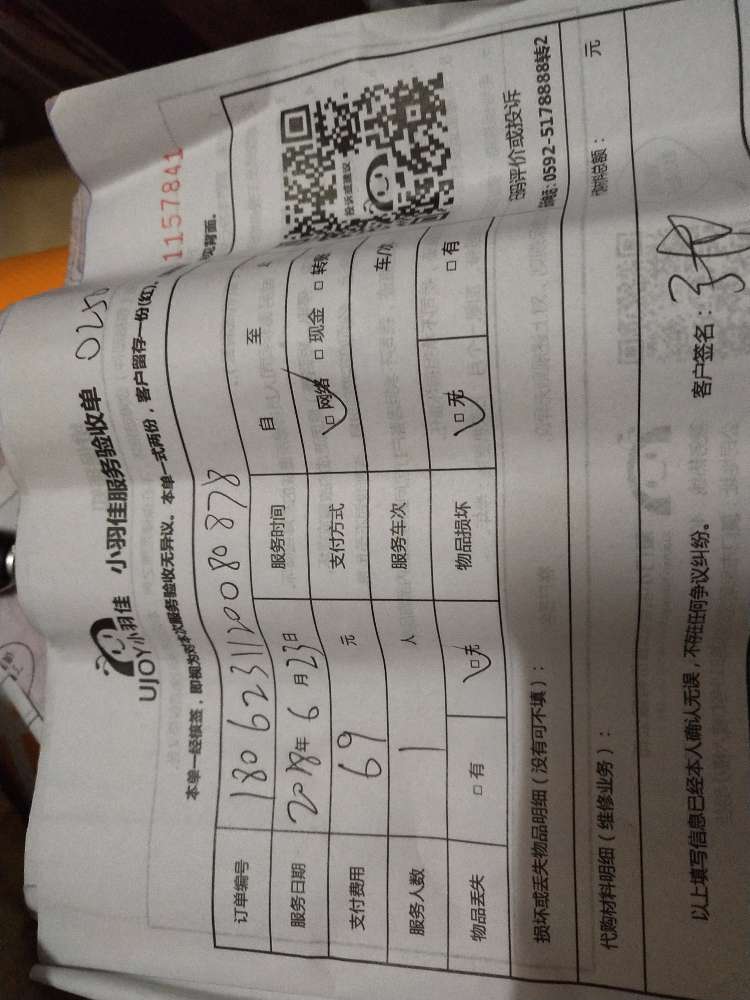 UJOY小羽佳 小羽佳服务验收单 025
1157841
本单一经核签，即视为对本次服务验收无异议。本单一式两份，客户留存一份(红)，
见背面。
订单编号 1806231120080878
服务日期 2018年 6 月 23日 服务时间 自 至
支付费用 69 元 支付方式 □网络 □现金 □转账
服务人数 1 人 服务车次 车/次
物品丢失 □有 □无 物品损坏 □无 □有
投诉或建议
码评价或投诉
0592-5178888转2
损坏或丢失物品明细（没有可不填）：
代购材料明细（维修业务）： 总额： 元
以上填写信息已经本人确认无误，不存在任何争议纠纷。 客户签名：